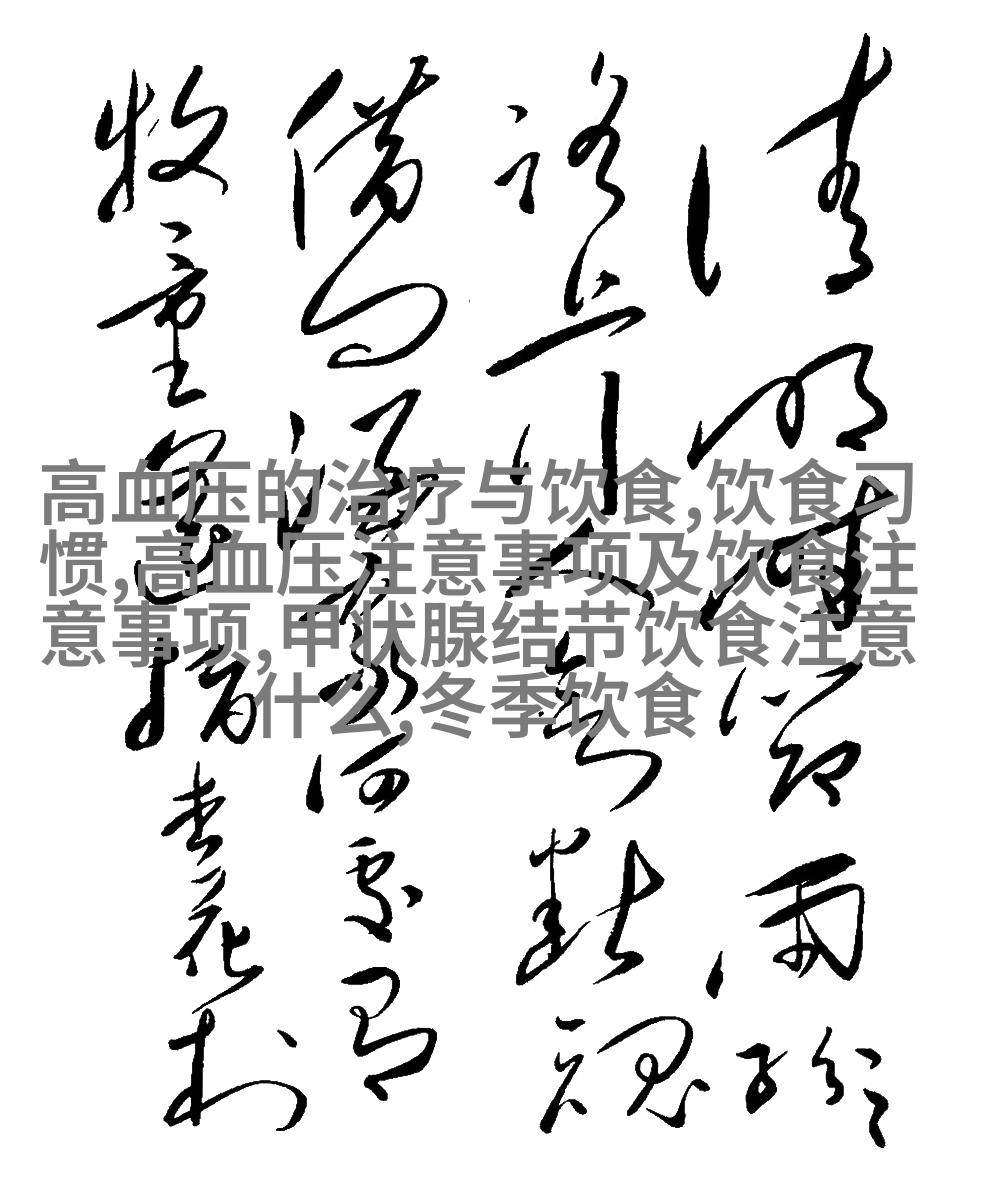 清明時節雨紛紛
路上行人欲斷魂
借問酒家何處有
牧童遙指杏花村
高血压的治疗与饮食,饮食习
惯,高血压注意事项及饮食注
意事项,甲状腺结节饮食注意
什么,冬季饮食